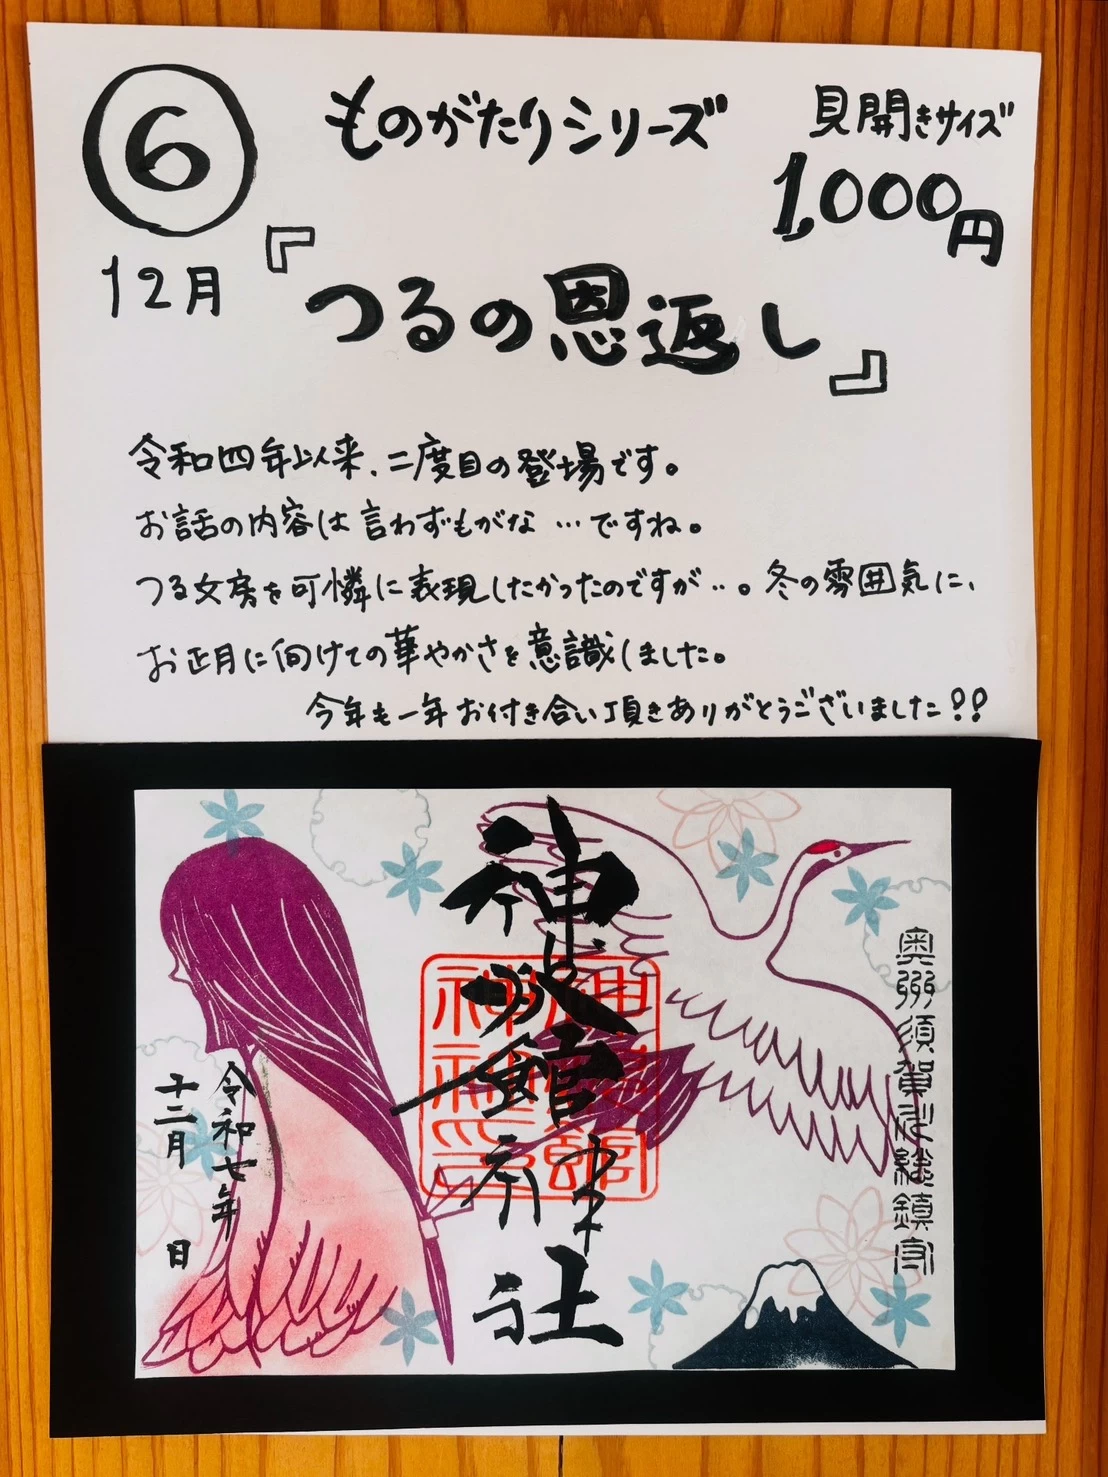 ⑥
ものがたりシリーズ
見開きサイズ
1,000円
12月
『つるの恩返し』
令和四年以来、二度目の登場です。
お話の内容は言わずもがな…ですね。
つる女房を可憐に表現したかったのですが…。冬の雰囲気に、
お正月に向けての華やかさを意識しました。
今年も一年お付き合い頂きありがとうございました!!
奥州須賀川総鎮守
神炊館神社
令和七年
十二月 日